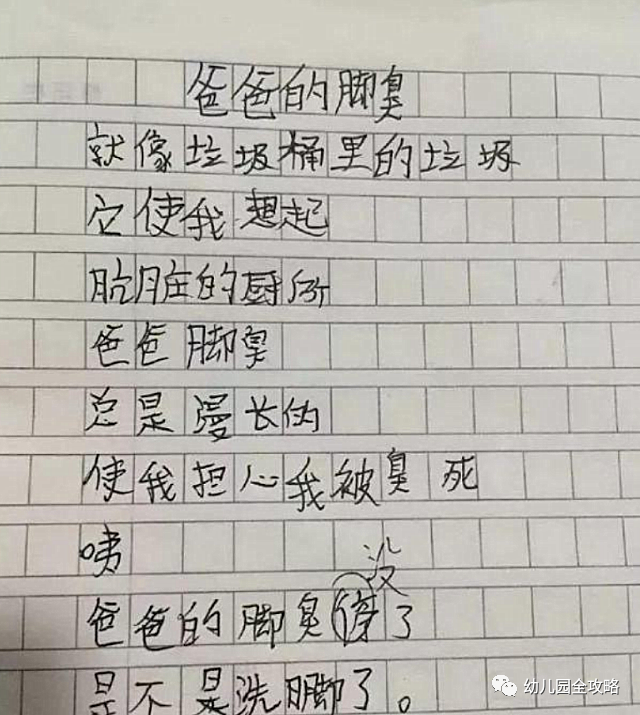 爸爸的脚臭
就像垃圾桶里的垃圾
它使我想起
肮脏的厨所
爸爸脚臭
总是漫长的
使我担心我被臭死
咦
没
爸爸的脚臭停了
是不是洗脚了。
幼儿园全攻略